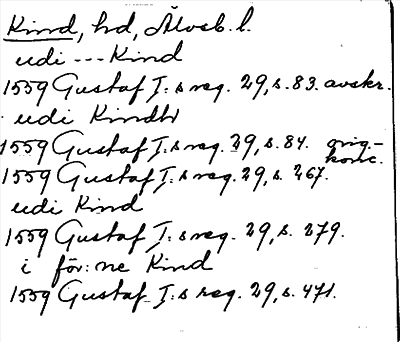 Kind, hd, Älvsb. l.
udi --- Kind
1559 Gustaf I:s reg. 29, s. 83. avskr.
udi Kindh
1559 Gustaf I:s reg. 29, s. 84. orig.-konc.
1559 Gustaf I:s reg. 29, s. 267.
udi Kind
1559 Gustaf I:s reg. 29, s. 279.
i för:ne Kind
1559 Gustaf I:s reg. 29, s. 471.